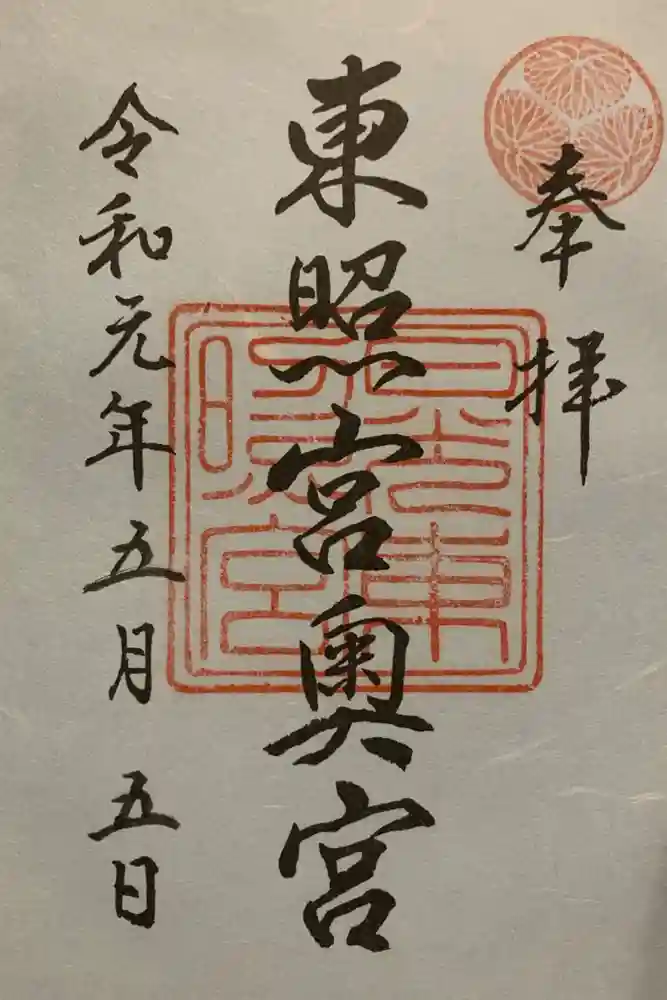 奉拝
東照宮奥宮
令和元年五月五日